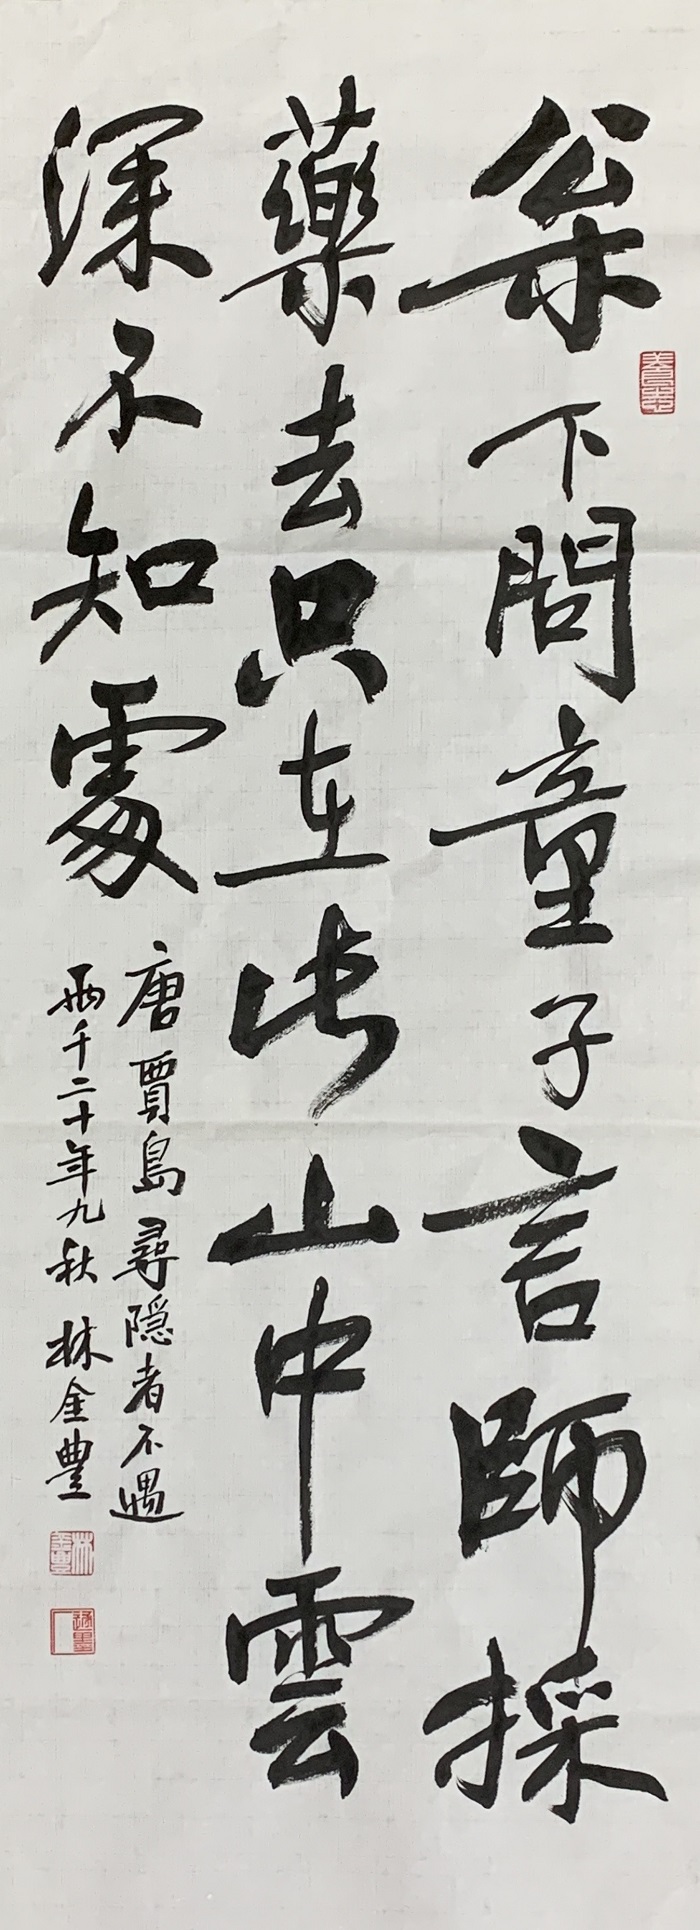 枀下問童子言師採
藥去只在此山中雲
深不知處
唐賈島尋隱者不遇
兩千二十年九秋 林金豐
林金豐